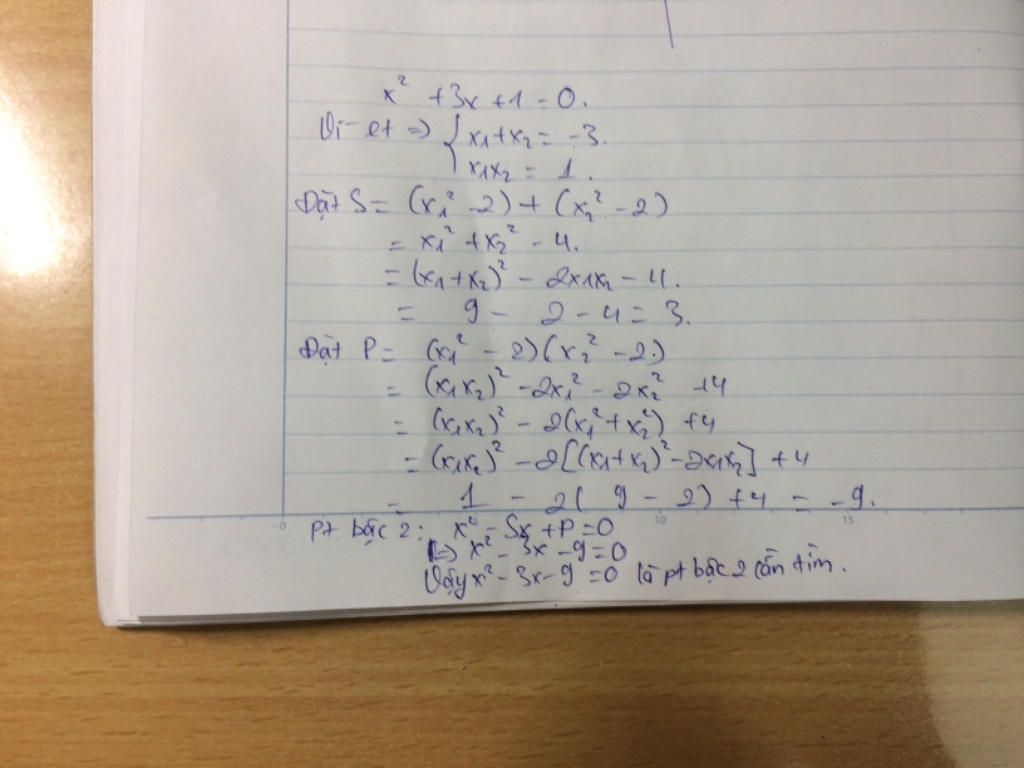 x² + 3x + 1 = 0.
Vi-et => { x1 + x2 = -3.
x1x2 = 1.
Đặt S = (x1² - 2) + (x2² - 2)
= x1² + x2² - 4.
= (x1 + x2)² - 2x1x2 - 4.
= 9 - 2 - 4 = 3.
Đặt P = (x1² - 2)(x2² - 2)
= (x1x2)² - 2x1² - 2x2² + 4
= (x1x2)² - 2(x1² + x2²) + 4
= (x1x2)² - 2[(x1 + x2)² - 2x1x2] + 4
= 1 - 2(9 - 2) + 4 = -9.
0 10 15
pt bậc 2: x² - Sx + P = 0
<=> x² - 3x - 9 = 0
Vậy x² - 3x - 9 = 0 là pt bậc 2 cần tìm.